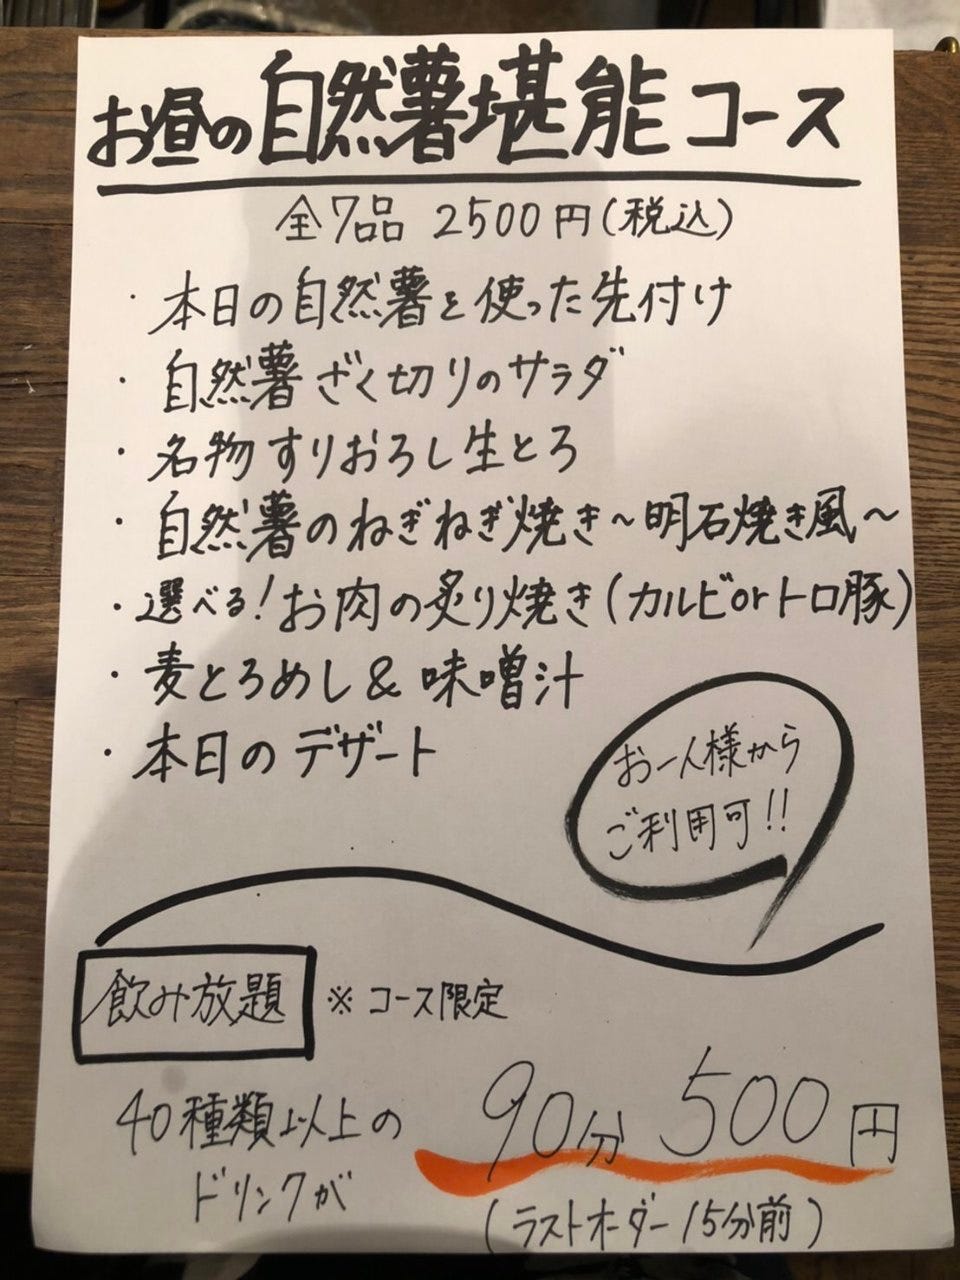 お昼の自然薯堪能コース
全7品 2500円(税込)
・本日の自然薯を使った先付け
・自然薯ざく切りのサラダ
・名物すりおろし生とろ
・自然薯のねぎねぎ焼き～明石焼き風～
・選べる!お肉の炙り焼き(カルビorトロ豚)
・麦とろめし&味噌汁
・本日のデザート
お一人様から
ご利用可!!
飲み放題 ※コース限定
40種類以上の
ドリンクが
90分 500円
(ラストオーダー15分前)